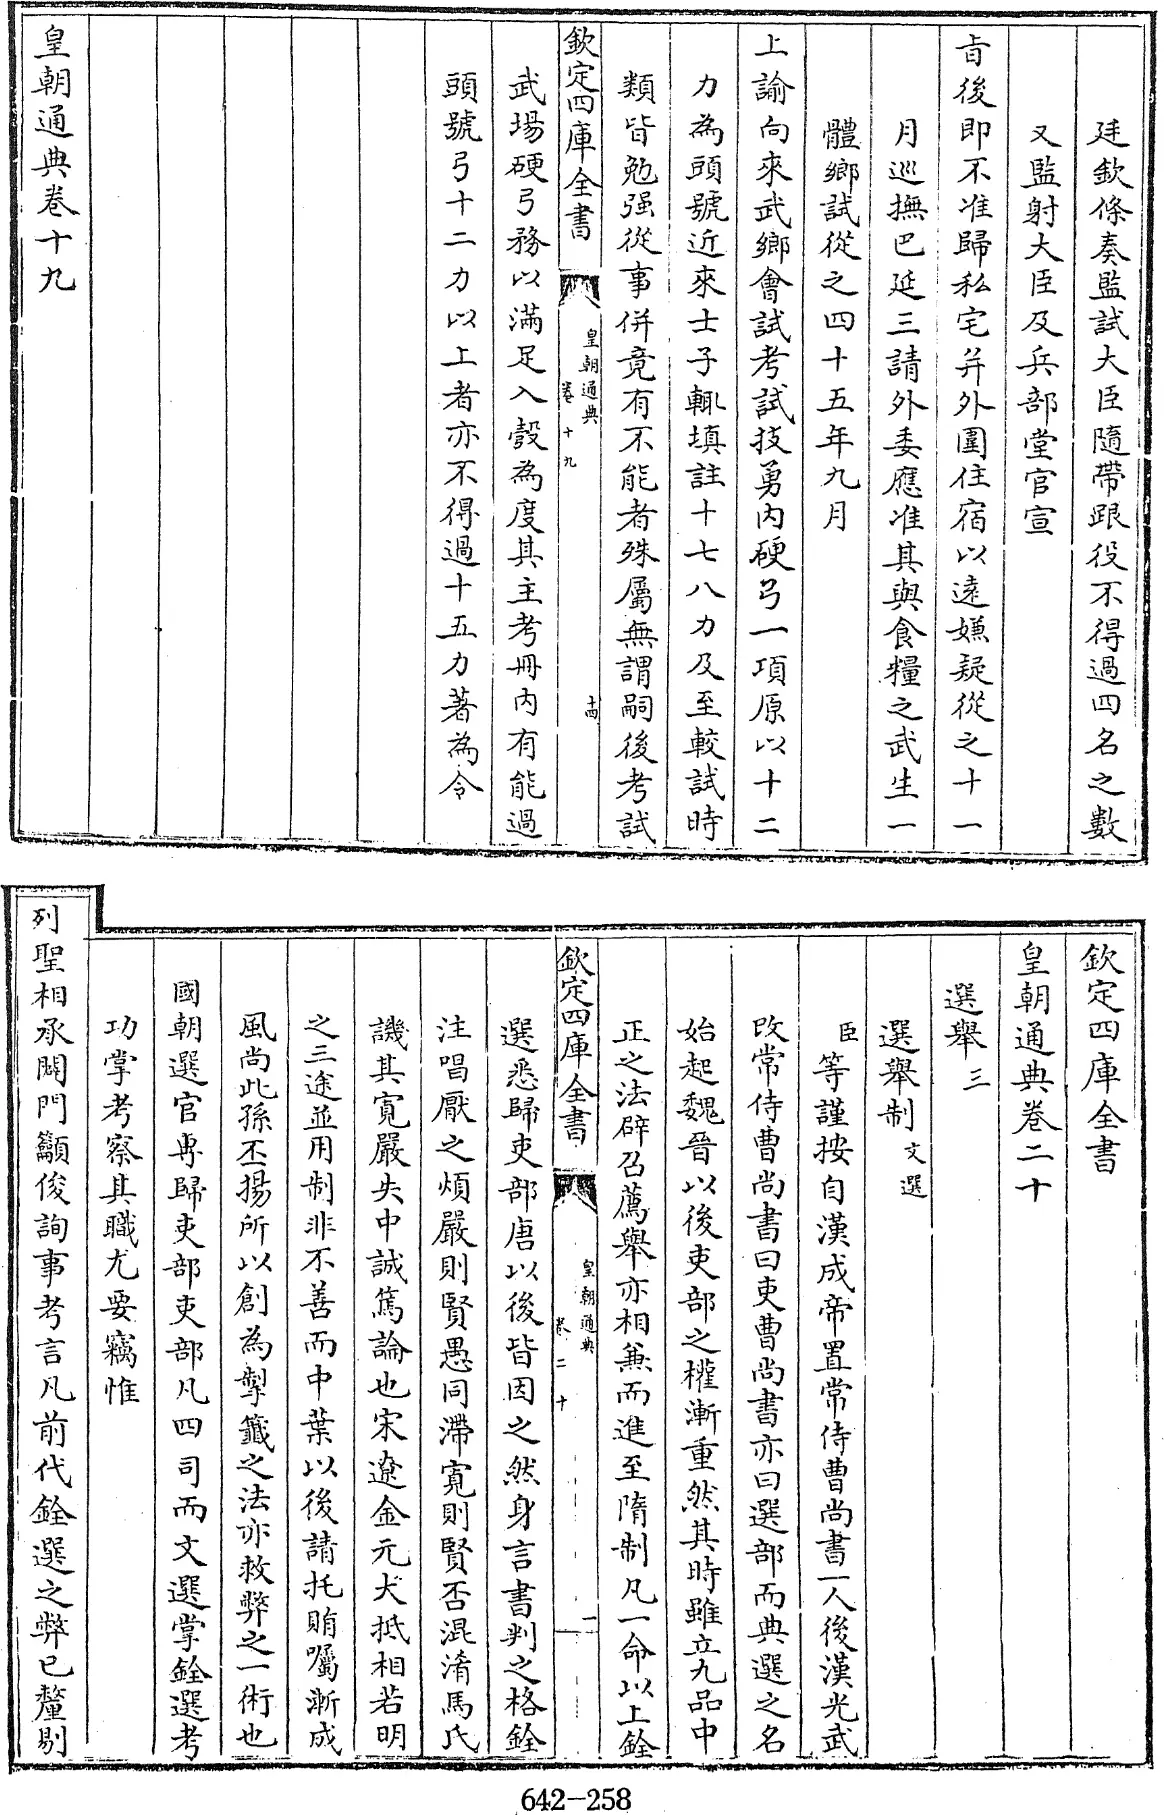 廷欽條奏監試大臣隨帶跟役不得過四名之數
又監射大臣及兵部堂官宣
旨後即不准歸私宅并外圍住宿以遠嫌疑從之十一
月巡撫巴延三請外委應准其與食糧之武生一
體鄉試從之四十五年九月
上諭向來武鄉會試考試技勇内硬弓一項原以十二
力為頭號近來士子輒填註十七八力及至較試時
類皆勉强從事併竟有不能者殊屬無謂嗣後考試
欽定四庫全書
皇朝通典
卷十九
十四
武場硬弓務以滿足入彀為度其主考冊内有能過
頭號弓十二力以上者亦不得過十五力著為令
皇朝通典卷十九
欽定四庫全書
皇朝通典卷二十
選舉三
選舉制文選
臣等謹按自漢成帝置常侍曹尚書一人後漢光武
改常侍曹尚書曰吏曹尚書亦曰選部而典選之名
始起魏晉以後吏部之權漸重然其時雖立九品中
正之法辟召薦舉亦相兼而進至隋制凡一命以上銓
欽定四庫全書
皇朝通典
卷二十
一
選悉歸吏部唐以後皆因之然身言書判之格銓
注唱厭之煩嚴則賢愚同滯寛則賢否混淆馬氏
譏其寛嚴失中誠篤論也宋遼金元大抵相若明
之三途並用制非不善而中葉以後請托賄囑漸成
風尚此孫丕揚所以創為掣籤之法亦救弊之一術也
國朝選官專歸吏部吏部凡四司而文選掌銓選考
功掌考察其職尤要竊惟
列聖相承闢門籲俊詢事考言凡前代銓選之弊已釐剔
642-258